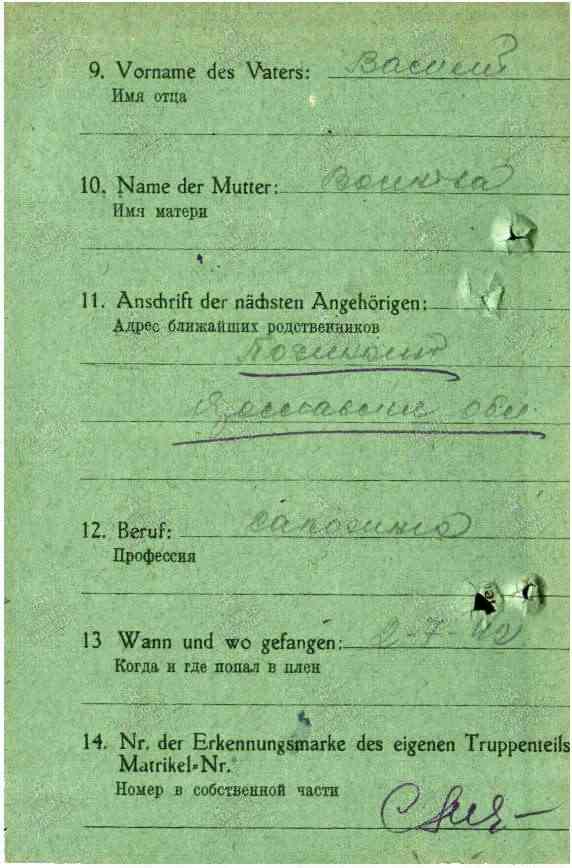 9. Vorname des Vaters: Васили
Имя отца
10. Name der Mutter:
Имя матери
11. Anschrift der nächsten Angehörigen:
Адрес ближайших родственников
обл.
12. Beruf: сапожник
Профессия
13 Wann und wo gefangen: 2-7-42
Когда и где попал в плен
14. Nr. der Erkennungsmarke des eigenen Truppenteils
Matrikel-Nr.
Номер в собственной части